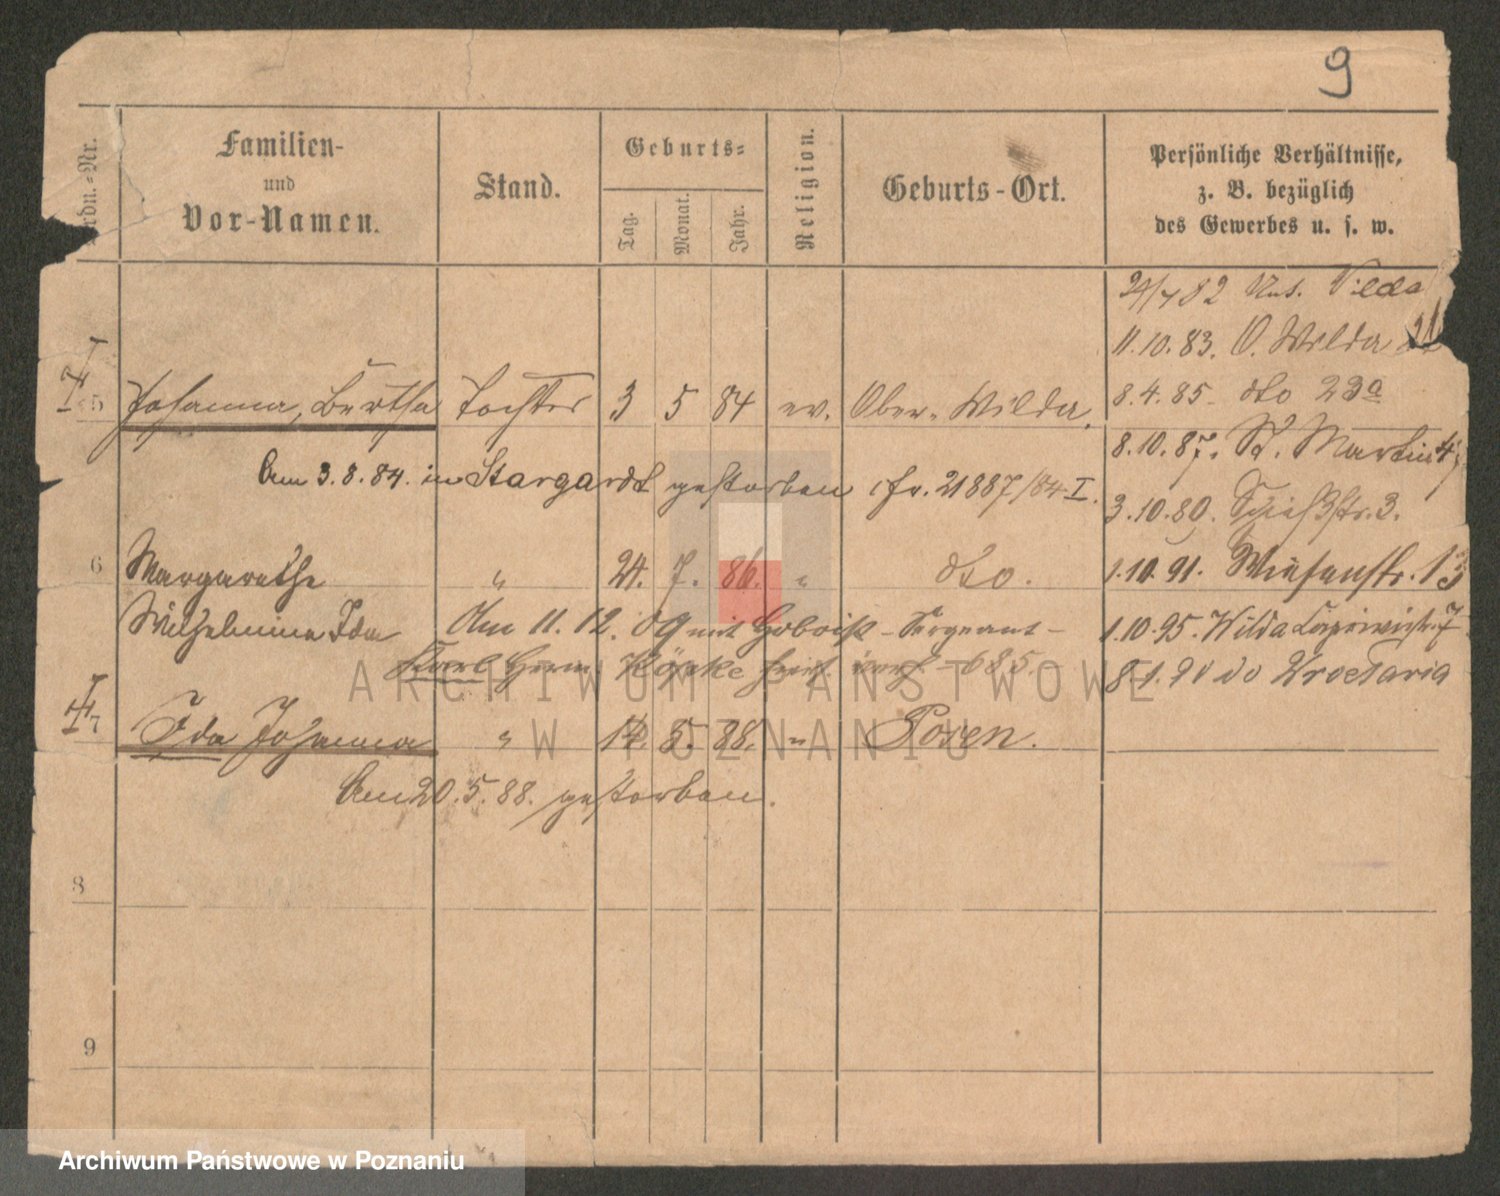 9
Ordn.-Nr.
Familien-
und
Vor-Namen.
Stand.
Geburts-
Tag.
Monat.
Jahr.
Religion.
Geburts-Ort.
Persönliche Verhältnisse,
z. B. bezüglich
des Gewerbes u. s. w.
24/7 82 Unt. Vilda
11.10.83. O. Wilda
5 Johanna, Bertha Tochter 3 5 84 ev. Ober-Wilda,
8.4.85 dto 23a
8.10.87. St. Martin
Am 3.8.84. in Stargardt gestorben cfr. 21887/84 I.
3.10.89. Schießstr. 3.
6 Margarethe " 24. 7. 86. " dto.
1.10.91. Wiesenstr. 13
Wilhelmine Ida Am 11.12.09 mit Hoboist-Sergeant-
1.10.95. Wilda 7
Karl Herm. Köpke 685.
do
7 Ida Johanna " 14. 5. 88. " Posen.
Am 20.5.88. gestorben.
8
9
ARCHIWUM PAŃSTWOWE
W POZNANIU
Archiwum Państwowe w Poznaniu